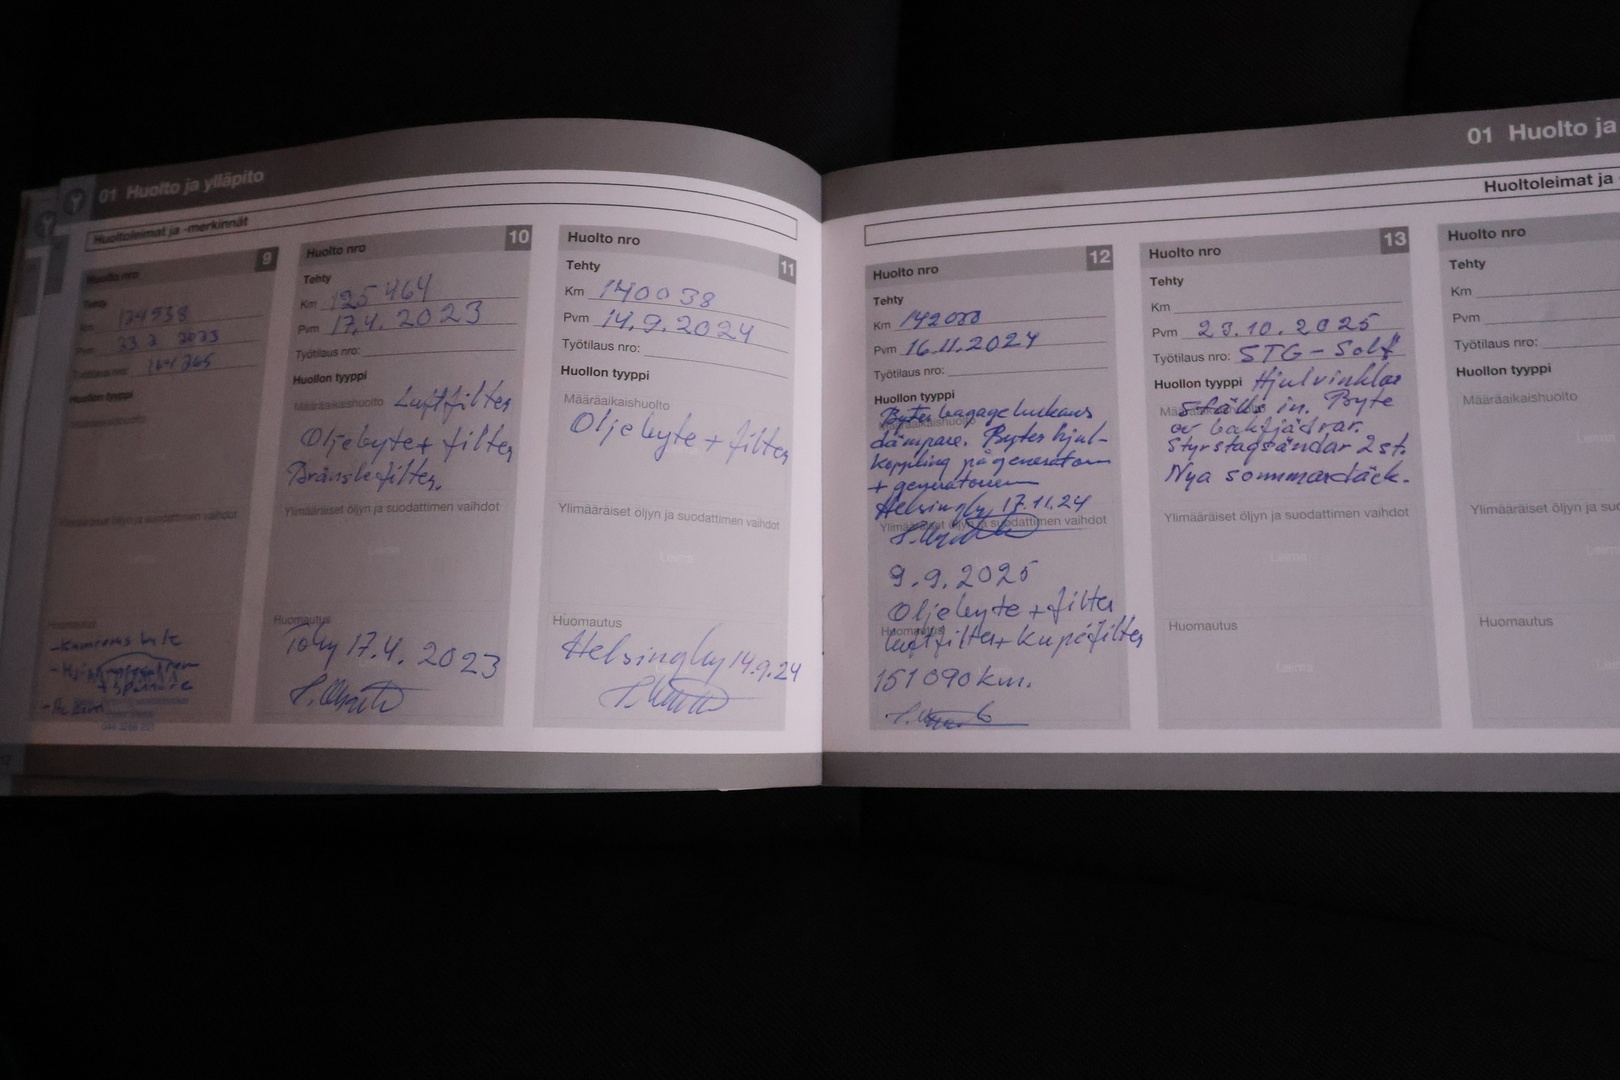 01 Huolto ja ylläpito
Huoltoleimat ja -merkinnät
Huolto nro 9
Tehty
Km 124938
Pvm 2023
Työtilaus nro:
Huollon tyyppi
Määräaikaishuolto
Ylimääräiset öljyn ja suodattimen vaihdot
Huomautus
- Kamrems byte
Huolto nro 10
Tehty
Km 125 464
Pvm 17.4. 2023
Työtilaus nro:
Huollon tyyppi
Määräaikaishuolto Luftfilter
Oljebyte+ filter
Bränslefilter.
Ylimääräiset öljyn ja suodattimen vaihdot
Leima
Huomautus
Toby 17.4. 2023
Huolto nro 11
Tehty
Km 140038
Pvm 14.9.2024
Työtilaus nro:
Huollon tyyppi
Määräaikaishuolto
Oljebyte + filter
Ylimääräiset öljyn ja suodattimen vaihdot
Leima
Huomautus
Helsingby 14.9.24
01 Huolto ja
Huoltoleimat ja
Huolto nro 12
Tehty
Km
Pvm 16.11.2024
Työtilaus nro:
Huollon tyyppi
Bytes bagage luckans
Määräaikaishuolto
dämpare. Bytes hjul-
koppling på generatorn
+ generatorn
Helsingby 17.11.24
Ylimääräiset öljyn ja suodattimen vaihdot
9.9.2025
Oljebyte + filter
Huomautus
luftfilter+ kupéfilter
151090 km.
Huolto nro 13
Tehty
Km
Pvm 23.10.2025
Työtilaus nro: STG - Solf
Huollon tyyppi Hjulvinklar
Määräaikaishuolto
ställs in. Byte
av bakfjädrar.
Styrstagsändar 2st.
Nya sommardäck.
Ylimääräiset öljyn ja suodattimen vaihdot
Leima
Huomautus
Leima
Huolto nro
Tehty
Km
Pvm
Työtilaus nro:
Huollon tyyppi
Määräaikaishuolto
Ylimääräiset öljyn ja
Huomautus